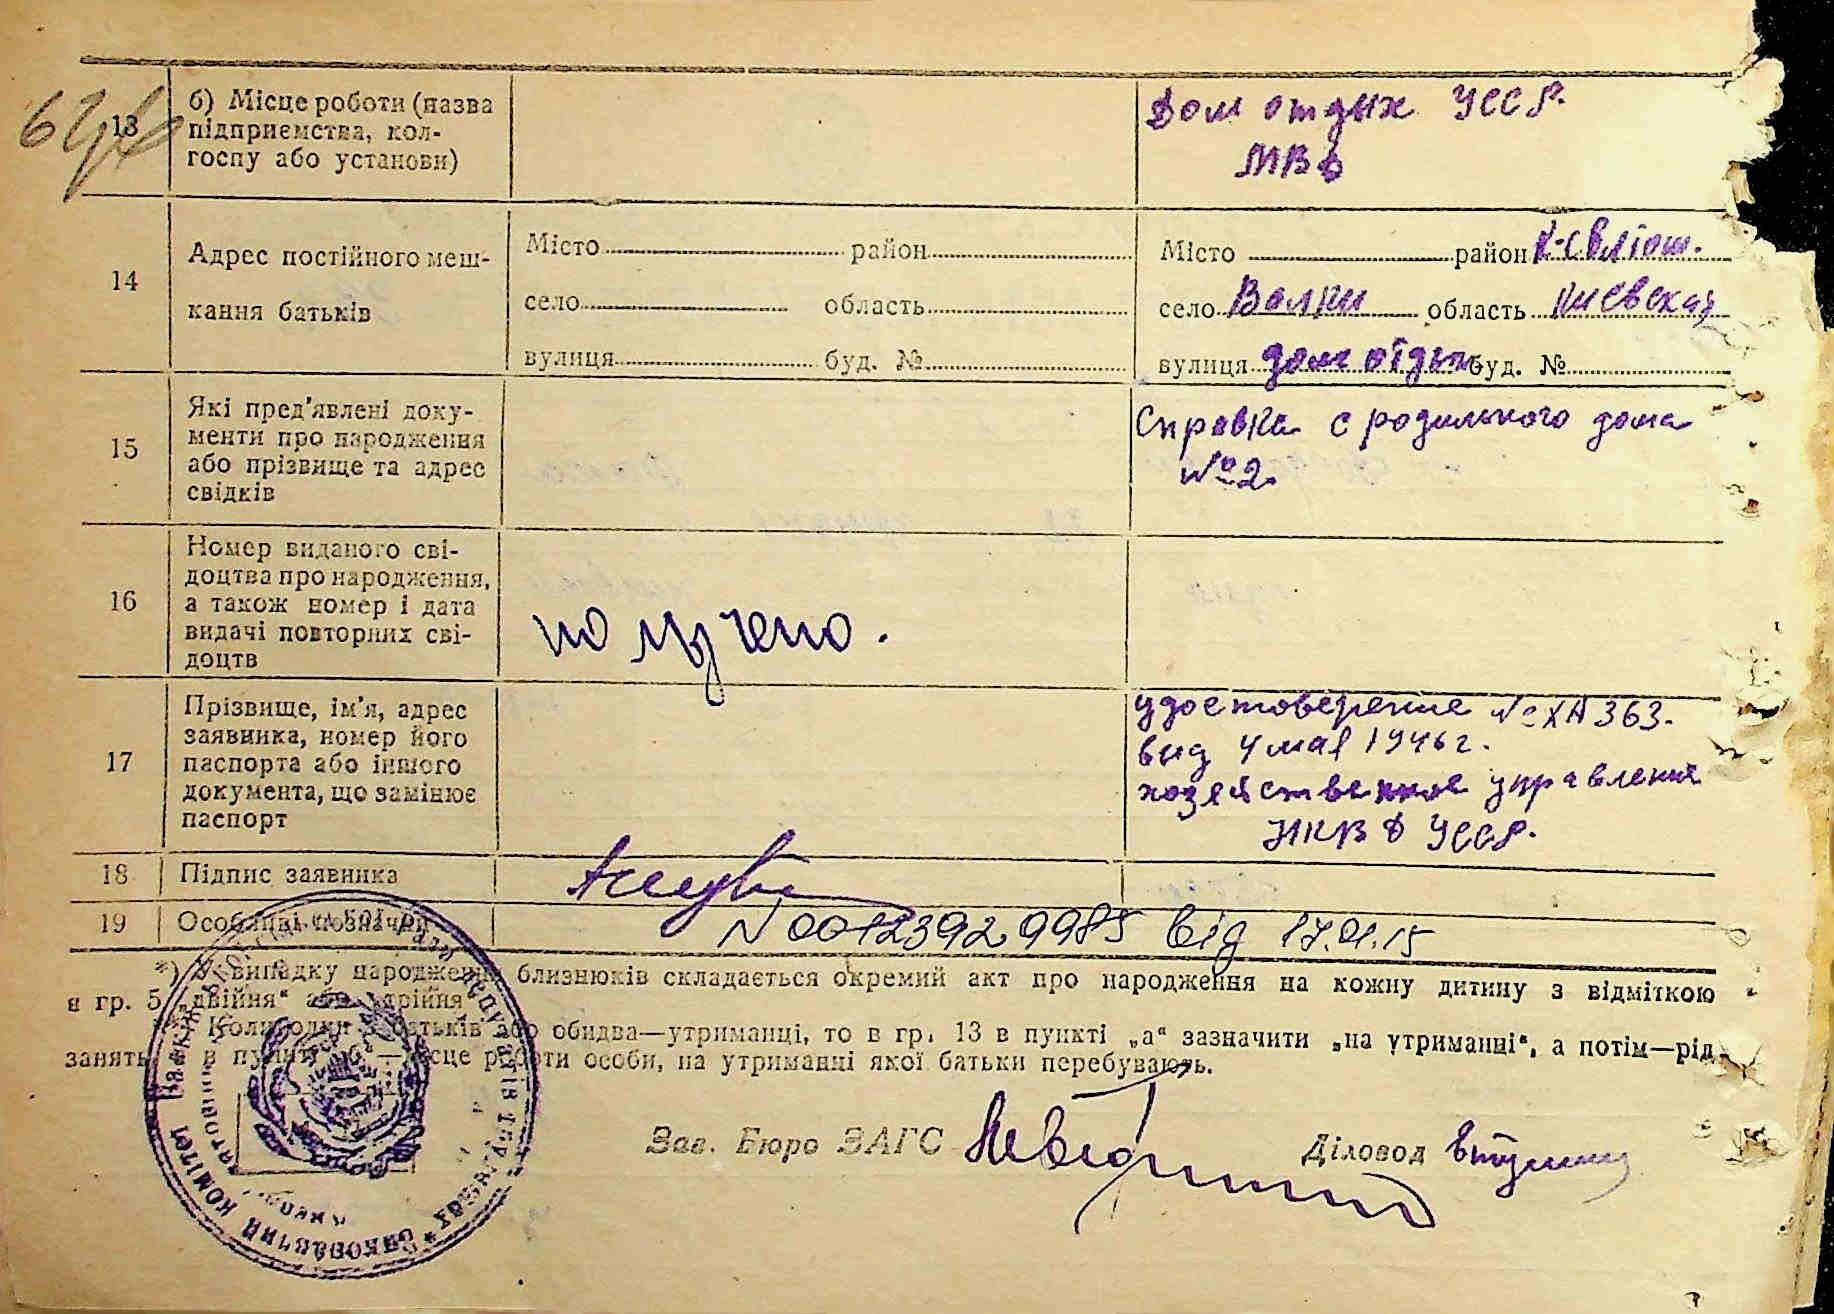 13
б) Місце роботи (назва
підприємства, кол-
госпу або установи)
Дом отдых УССР.
МВД
14
Адрес постійного меш-
кання батьків
Місто район
село область
вулиця буд. №
Місто район К-Святош.
село Валки область Киевская
вулиця дом отдых буд. №
15
Які пред'явлені доку-
менти про народження
або прізвище та адрес
свідків
Справка с родильного дома
№2.
16
Номер виданого сві-
доцтва про народження,
а також номер і дата
видачі повторних сві-
доцтв
получено.
17
Прізвище, ім'я, адрес
заявника, номер його
паспорта або іншого
документа, що замінює
паспорт
удостоверение № ХА 363.
выд 4 мая 1946 г.
хозяйственное управления
НКВД УССР.
18
Підпис заявника
19
Особливі позначки
N 00123929985 від 17.01.15
*) У випадку народження близнюків складається окремий акт про народження на кожну дитину з відміткою
в гр. 5 „двійня“ або „трійня“
Коли один з батьків або обидва—утриманці, то в гр. 13 в пункті „а“ зазначити „на утриманні“, а потім—рід
занять, а в пункті —місце роботи особи, на утриманні якої батьки перебувають.
Зав. Бюро ЗАГС
Діловод
Виконавчий комітет
депутатів трудящих